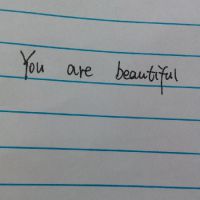 You are beautiful